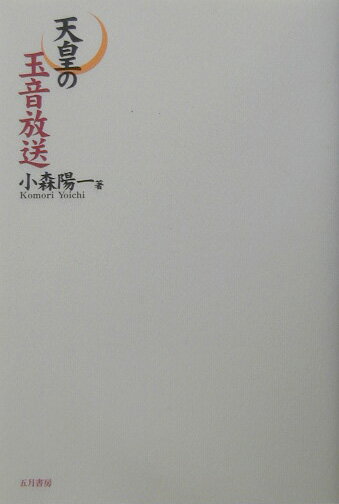 天皇の
玉音放送
小森陽一著
Komori Yoichi
五月書房